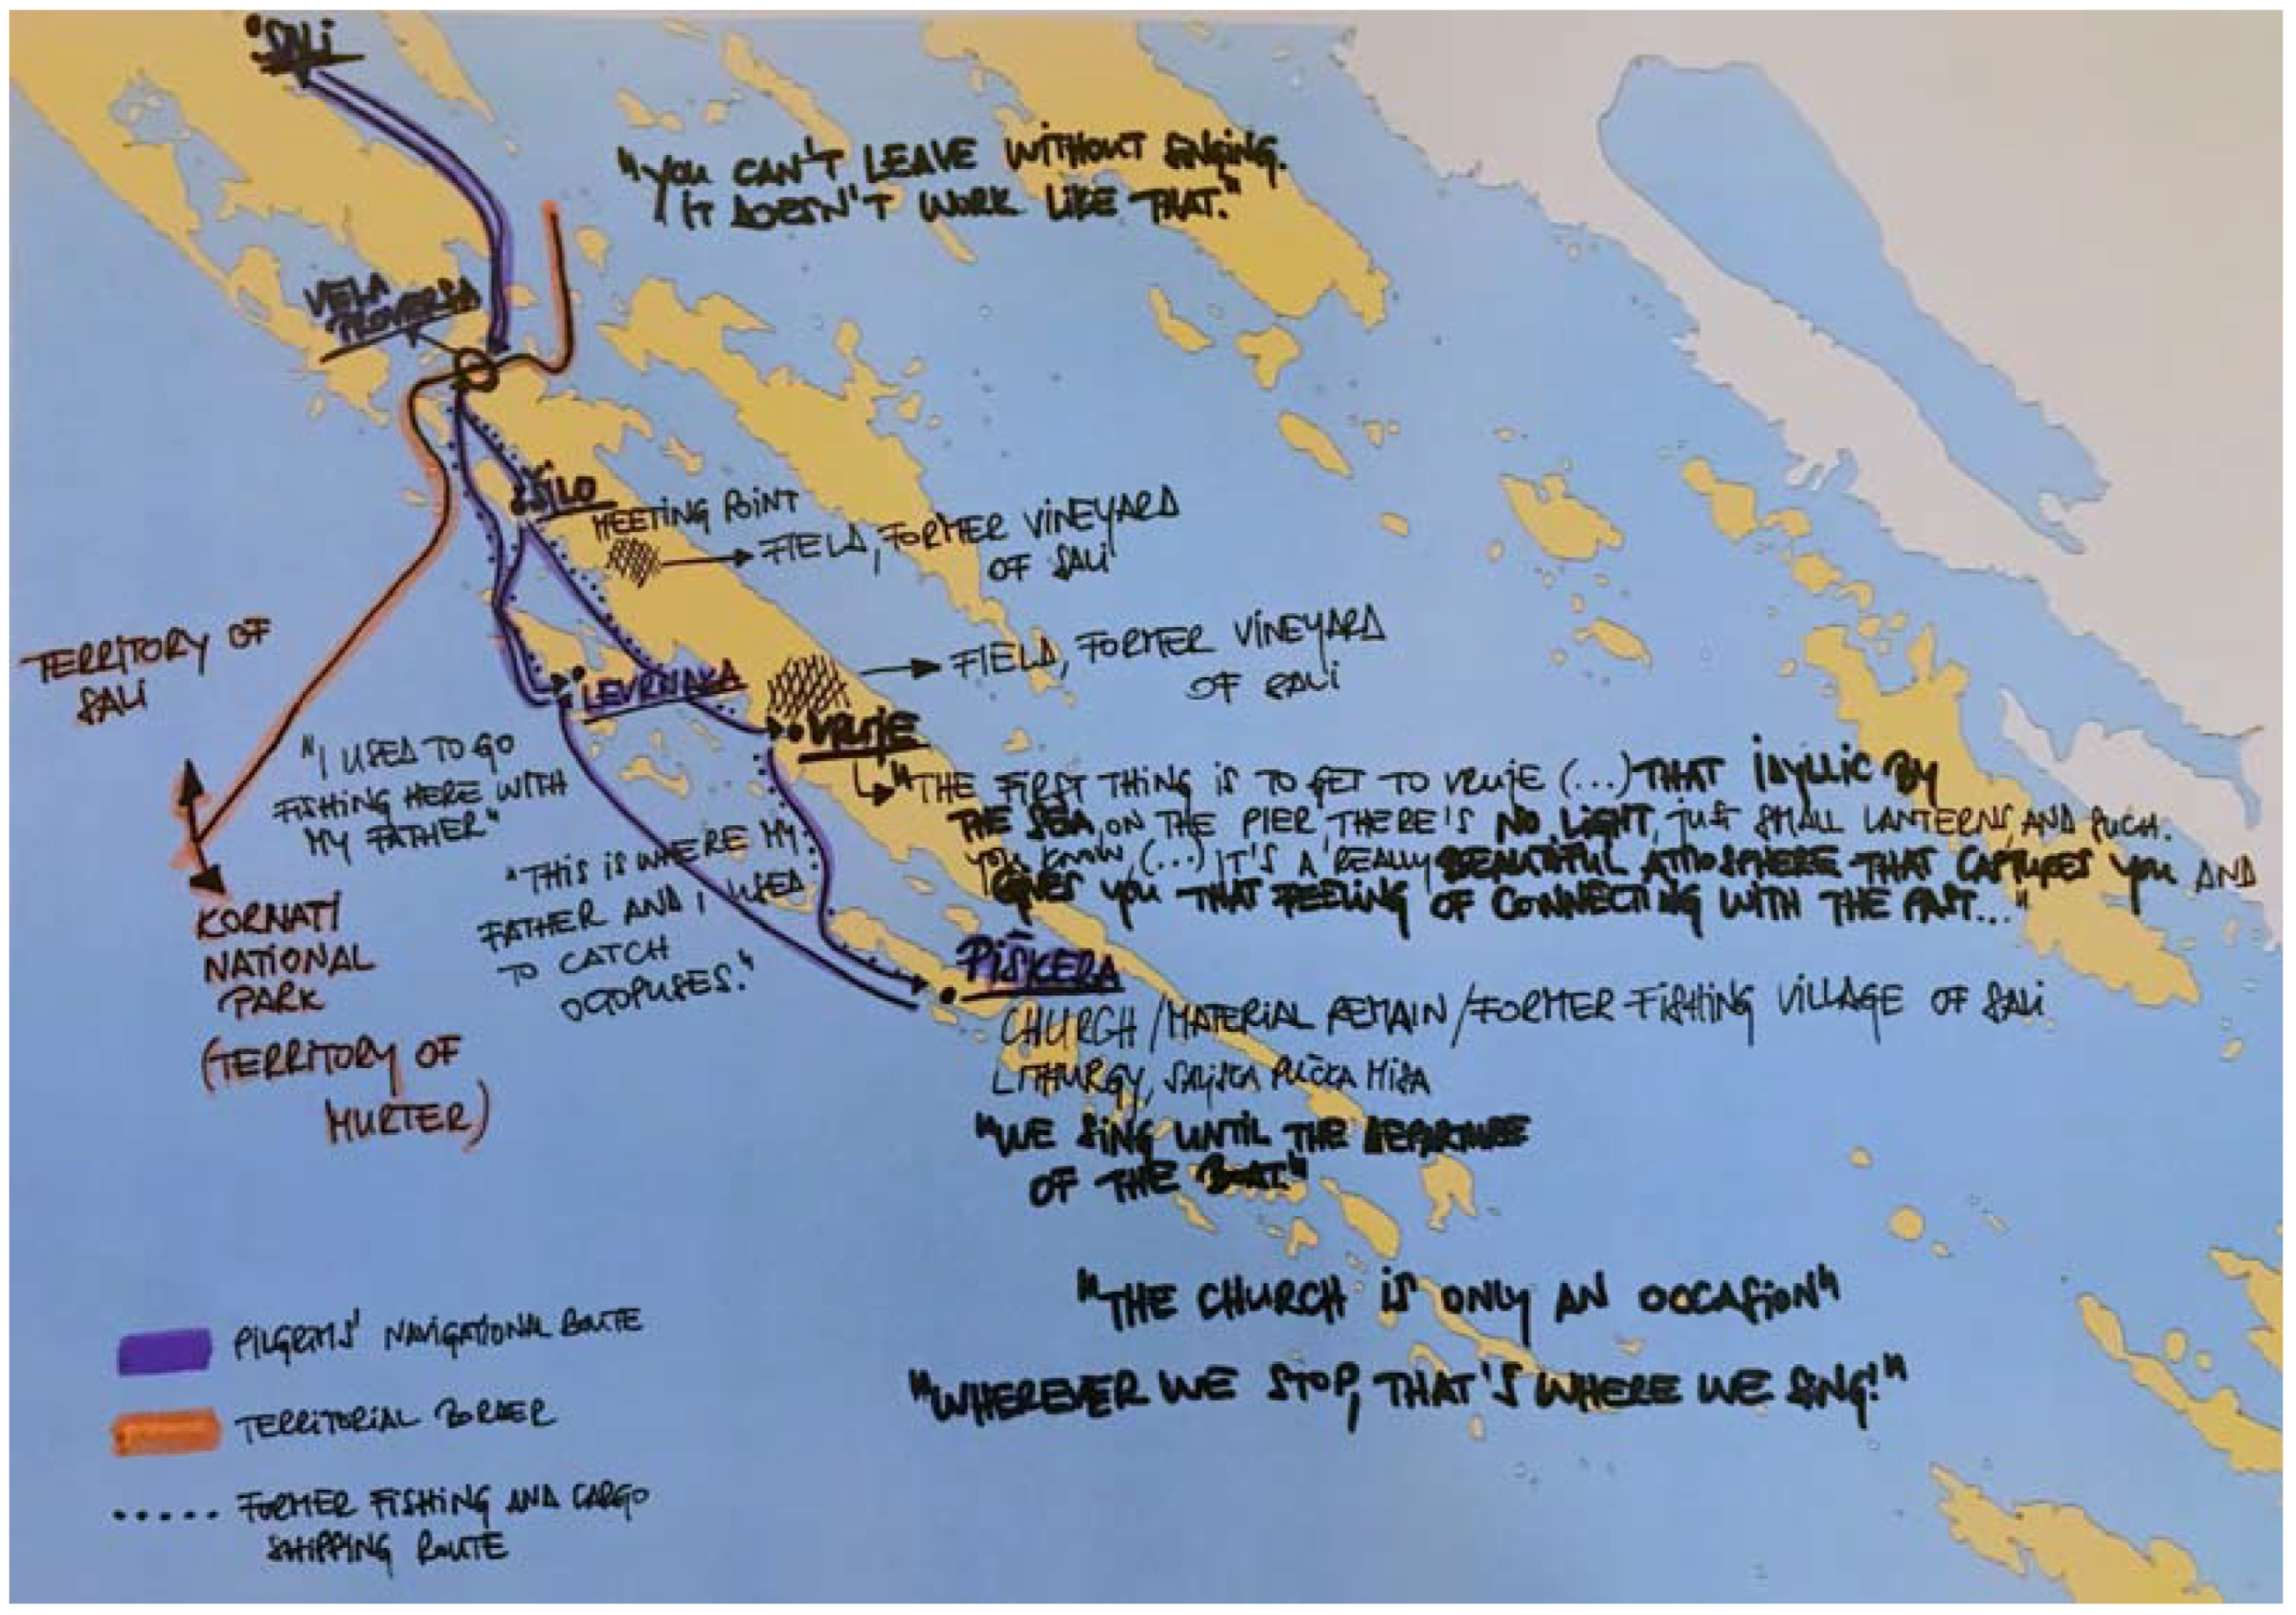 SALI
"YOU CAN'T LEAVE WITHOUT SINGING.
IT DOESN'T WORK LIKE THAT."
VELA
PROVERSA
ŠILO
MEETING POINT
FIELD, FORMER VINEYARD
OF SALI
FIELD, FORMER VINEYARD
OF SALI
TERRITORY OF
SALI
LEVRNAKA
VRUJE
"I USED TO GO
FISHING HERE WITH
MY FATHER"
"THE FIRST THING IS TO GET TO VRUJE (...) THAT IDYLLIC BY
THE SEA, ON THE PIER, THERE'S NO LIGHT, JUST SMALL LANTERNS, AND SUCH.
YOU KNOW, (...) IT'S A REALLY BEAUTIFUL ATMOSPHERE THAT CAPTURES YOU AND
GIVES YOU THAT FEELING OF CONNECTING WITH THE PAST..."
"THIS IS WHERE MY
FATHER AND I USED
TO CATCH
OCTOPUSES."
KORNATI
NATIONAL
PARK
(TERRITORY OF
MURTER)
PIŠKERA
CHURCH / MATERIAL REMAIN / FORMER FISHING VILLAGE OF SALI
LITHURGY, SALJSKA PUČKA MISA
"WE SING UNTIL THE DEPARTURE
OF THE BOAT."
"THE CHURCH IS ONLY AN OCCASION"
"WHEREVER WE STOP, THAT'S WHERE WE SING!"
PILGRIMS' NAVIGATIONAL ROUTE
TERRITORIAL BORDER
FORMER FISHING AND CARGO
SHIPPING ROUTE